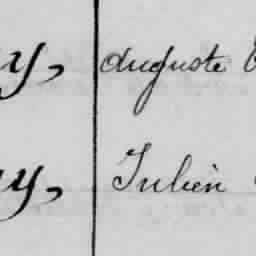 y, Auguste
y, Julien